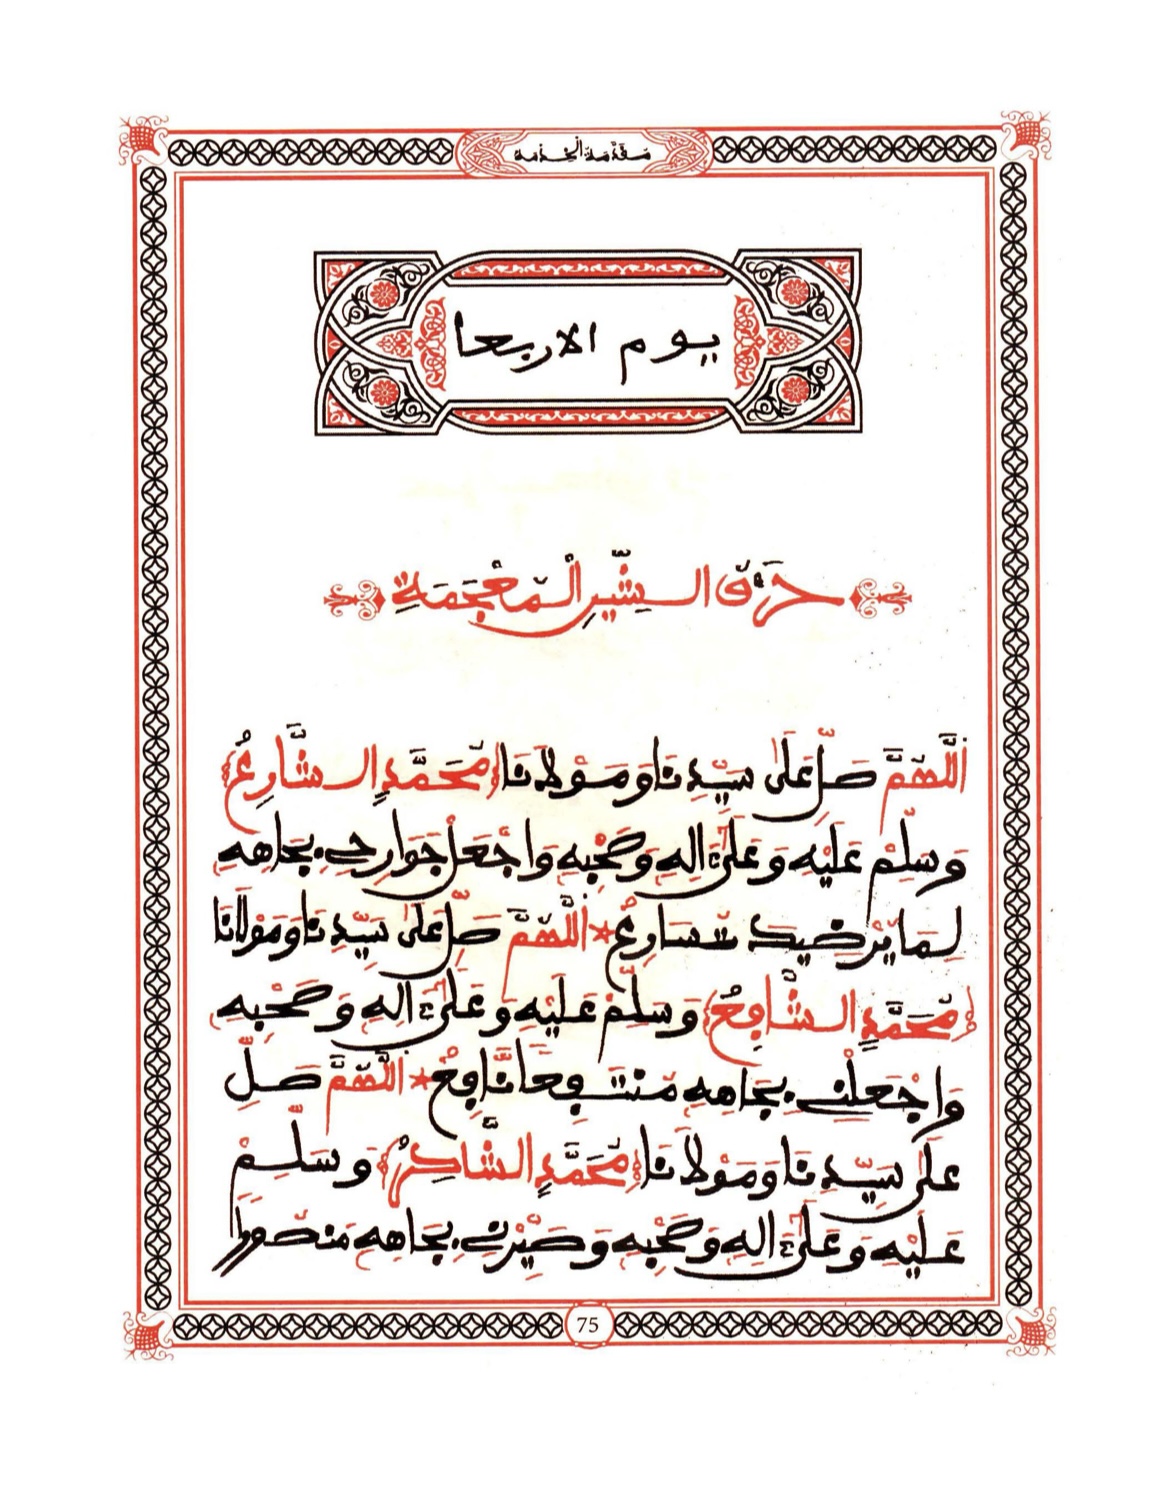 مقدمة الخدمة
يوم الاربعا
حَرْفُ الشِّينِ الْمُعْجَمَةِ
اَللَّهُمَّ صَلِّ عَلَى سَيِّدِنَا وَمَوْلَانَا (مُحَمَّدٍ الشَّارِعِ)
وَسَلِّمْ عَلَيْهِ وَعَلَى ءَالِهِ وَصَحْبِهِ وَاجْعَلْ جَوَارِحِي بِجَاهِهِ
لِمَا يُرْضِيكَ تُسَارِعُ * اَللَّهُمَّ صَلِّ عَلَى سَيِّدِنَا وَمَوْلَانَا
(مُحَمَّدٍ الشَّافِعِ) وَسَلِّمْ عَلَيْهِ وَعَلَى ءَالِهِ وَصَحْبِهِ
وَاجْعَلْنِي بِجَاهِهِ مُنْتَفِعًا نَافِعْ * اَللَّهُمَّ صَلِّ
عَلَى سَيِّدِنَا وَمَوْلَانَا (مُحَمَّدٍ الشَّاكِرِ) وَسَلِّمْ
عَلَيْهِ وَعَلَى ءَالِهِ وَصَحْبِهِ وَصَيِّرْنِي بِجَاهِهِ مَنْصُورًا
75